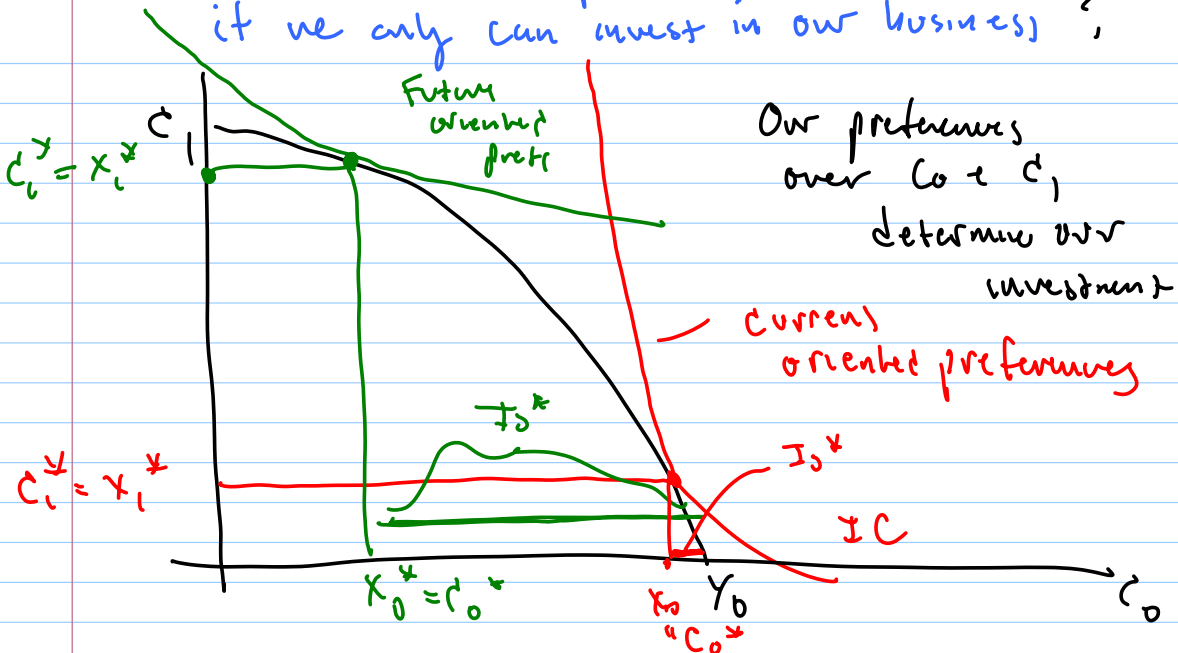 if we only can invest in our business,
Future
oriented
prefs
C₁
C₁* = X₁*
Our preferences
over C₀ & C₁
determine our
investment
Current
oriented preferences
I₀*
I₀*
C₁* = X₁*
IC
X₀* = C₀*
X₀
"C₀*
Y₀
C₀